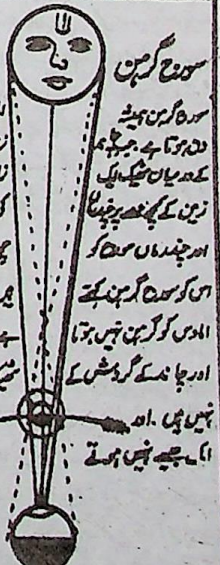 سورج گرہن
سورج گرہن ہمیشہ
دن ہوتا ہے جب
کے درمیان ٹھیک ایک
زمین کے کچھ حصے پر
اور چندرماں سورج کو
اس کو سورج گرہن کہتے
امادس کو گرہن نہیں ہوتا
اور چاند کے گردش کے
نہیں ہیں ۔ اور
ایک جیسے نہیں ہوتے